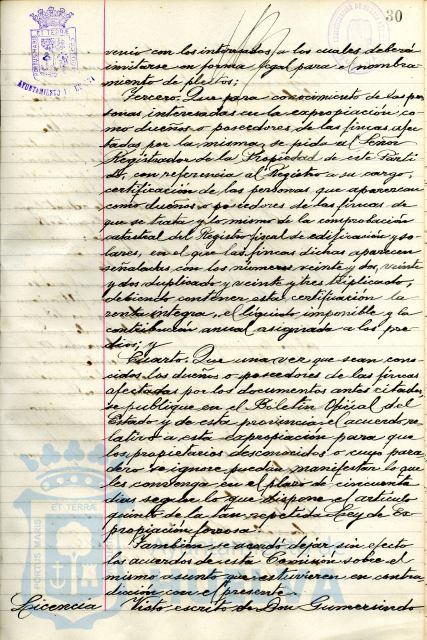 30
venio con los interesados a los cuales deberá
invitarse en forma legal para el nombra
miento de peritos;
Tercero. Que para conocimiento de las per
sonas interesadas en la expropiación co
mo dueños o poseedores de las fincas afec
tadas por la misma, se pida al Señor
Registrador de la Propiedad de este Parti
do, con referencia al Registro a su cargo,
certificación de las personas que aparezcan
como dueños o poseedores de las fincas de
que se trata y lo mismo de la comprobación
catastral del Registro fiscal de edificación y so
lares, en el que las fincas dichas aparecen
señaladas con los números veinte y dos, veinte
y dos duplicado y veinte y tres triplicado,
debiendo contener esta certificación la
renta íntegra, el líquido imponible y la
contribución anual asignada a los pre
dios; y
Cuarto. Que una vez que sean cono
cidos los dueños o poseedores de las fincas
afectadas por los documentos antes citados,
se publique en el Boletín Oficial del
Estado y de esta provincia el acuerdo re
lativo a esta expropiación para que
los propietarios desconocidos o cuyo para
dero se ignore puedan manifestar lo que
les convenga en el plazo de cincuenta
días según lo que dispone el artículo
quinto de la tan repetida Ley de Ex
propiación forzosa.
También se acordó dejar sin efecto
los acuerdos de esta Comisión sobre el
mismo asunto que estuvieren en contra
dicción con el presente.
Licencia Visto escrito de Don Gumersindo
PORTUS MARIS ET TERRÆ
Ayuntamiento de
HUELVA